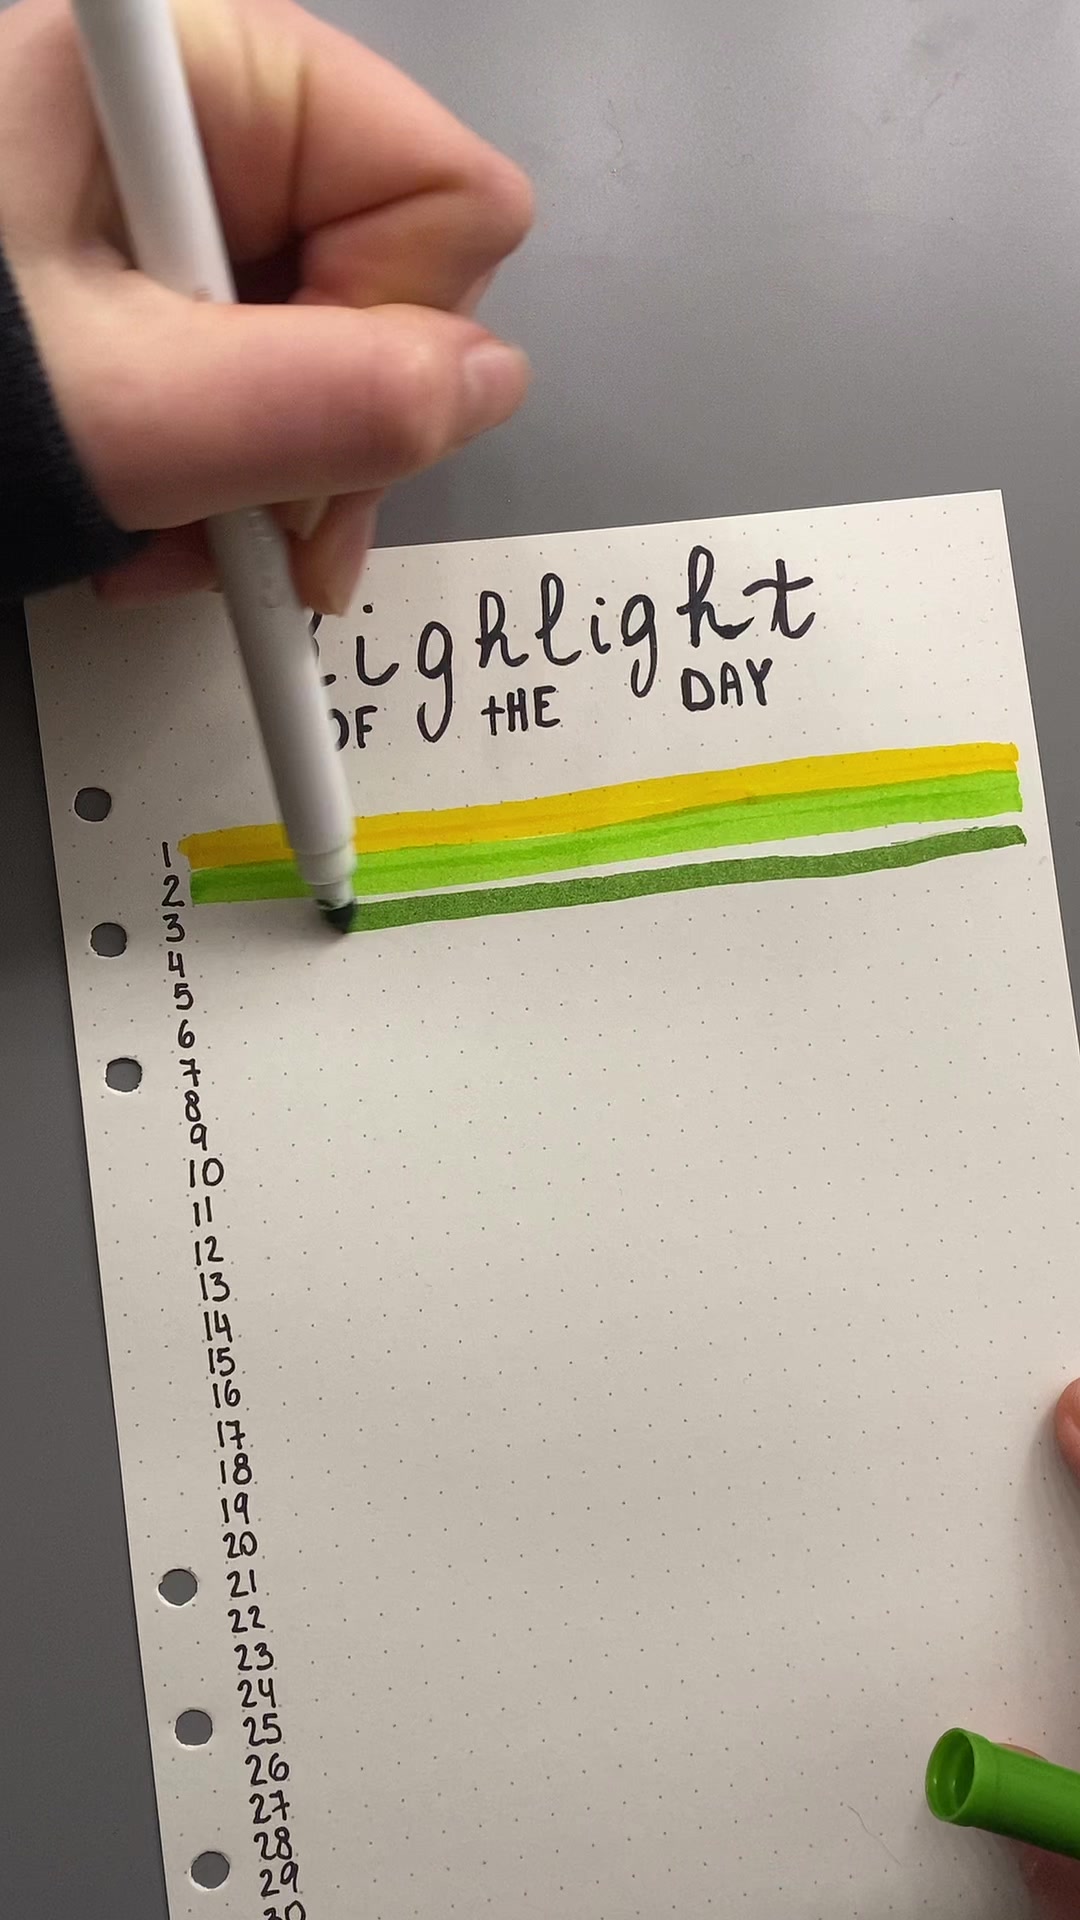 Highlight
OF THE DAY
1
2
3
4
5
6
7
8
9
10
11
12
13
14
15
16
17
18
19
20
21
22
23
24
25
26
27
28
29
30